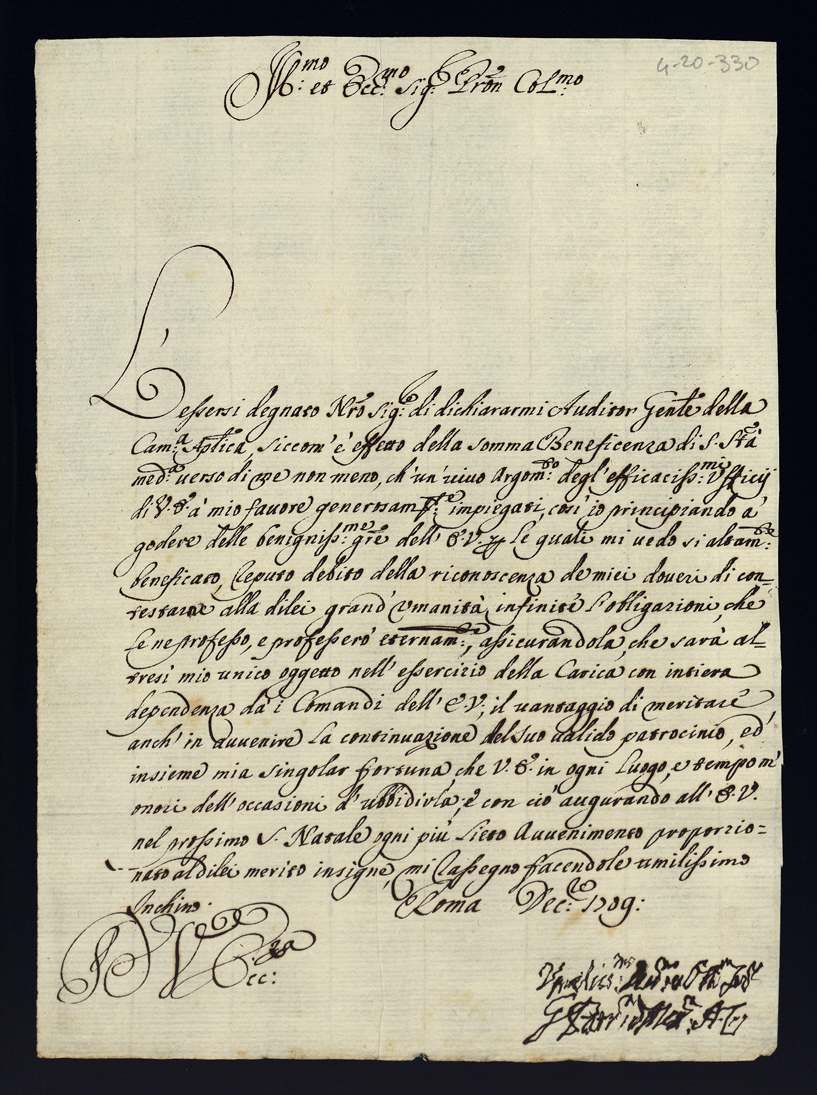 4-20-330
Ill:mo et Ecc:mo Sig:re Pron Col:mo
L'essersi degnato Nro Sig:re di dichiararmi Auditor Gen.te della
Cam:a Aplica, siccom' è effetto della somma Beneficenza di S. Stà
med:a verso di me non meno, ch'un' vivo Argom:to degl'efficaciss:mi Ufficij
di V. E. à mio favore generosam:te impiegati, così io principiando à
godere delle benigniss:me grē dell' E. V. p le quali mi vedo si altam:te
beneficato, Reputo debito della riconoscenza de miei doveri di con-
testarne alla dilei grand' Umanità infinite l'obligazioni, che
Le ne professo, e professerò eternam:te, assicurandola, che sarà al-
tresì mio unico oggetto nell' essercizio della Carica con intiera
dependenza da i Comandi dell' E. V., il vantaggio di meritare
anch' in avvenire la continuazione del suo valido patrocinio, ed'
insieme mia singolar fortuna, che V. E. in ogni luogo, e tempo m'
onori dell' occasioni d' ubbidirla, e con ciò augurando all' E. V.
nel prossimo S. Natale ogni più lieto Avvenimento proporzio=
nato al dilei merito insigne, mi Rassegno facendole umilissimo
Inchino. Roma Dec:re 1709:
Di V. Ecc:za